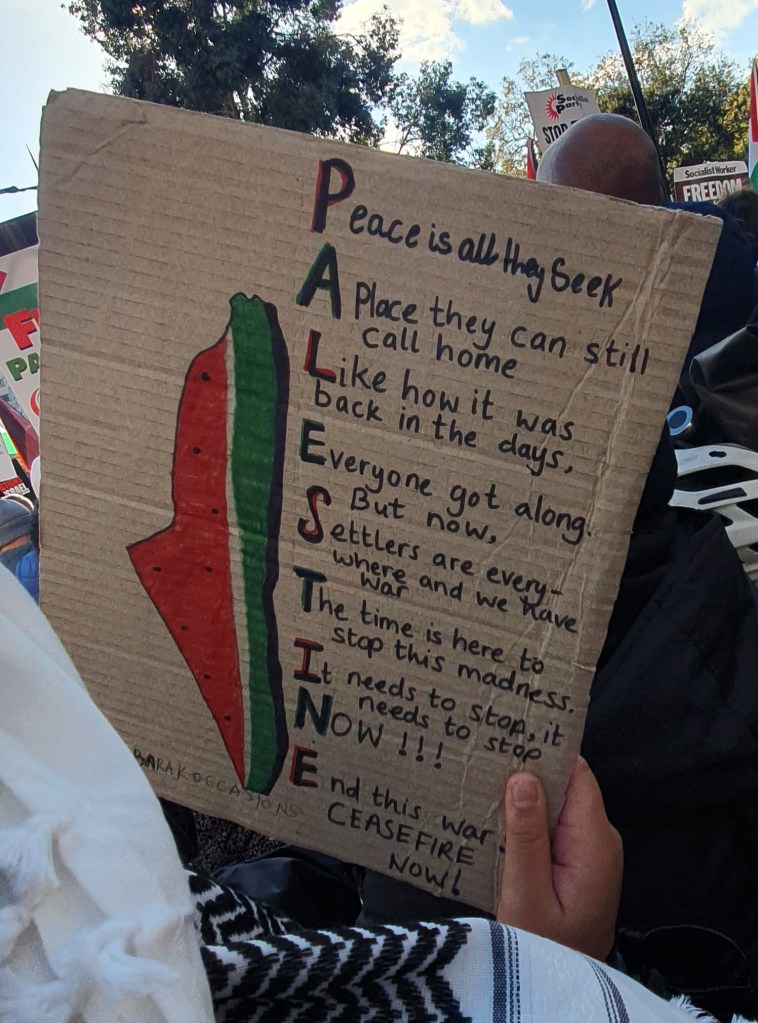 Socialist
Party
STOP
Socialist Worker
FREEDOM
Peace is all they Seek
A Place they can still
call home
Like how it was
back in the days,
Everyone got along.
But now,
Settlers are every-
where and we have
war
The time is here to
stop this madness.
It needs to stop, it
needs to stop
NOW !!!
End this war.
CEASEFIRE
NOW!
BARAKOCCASIONS